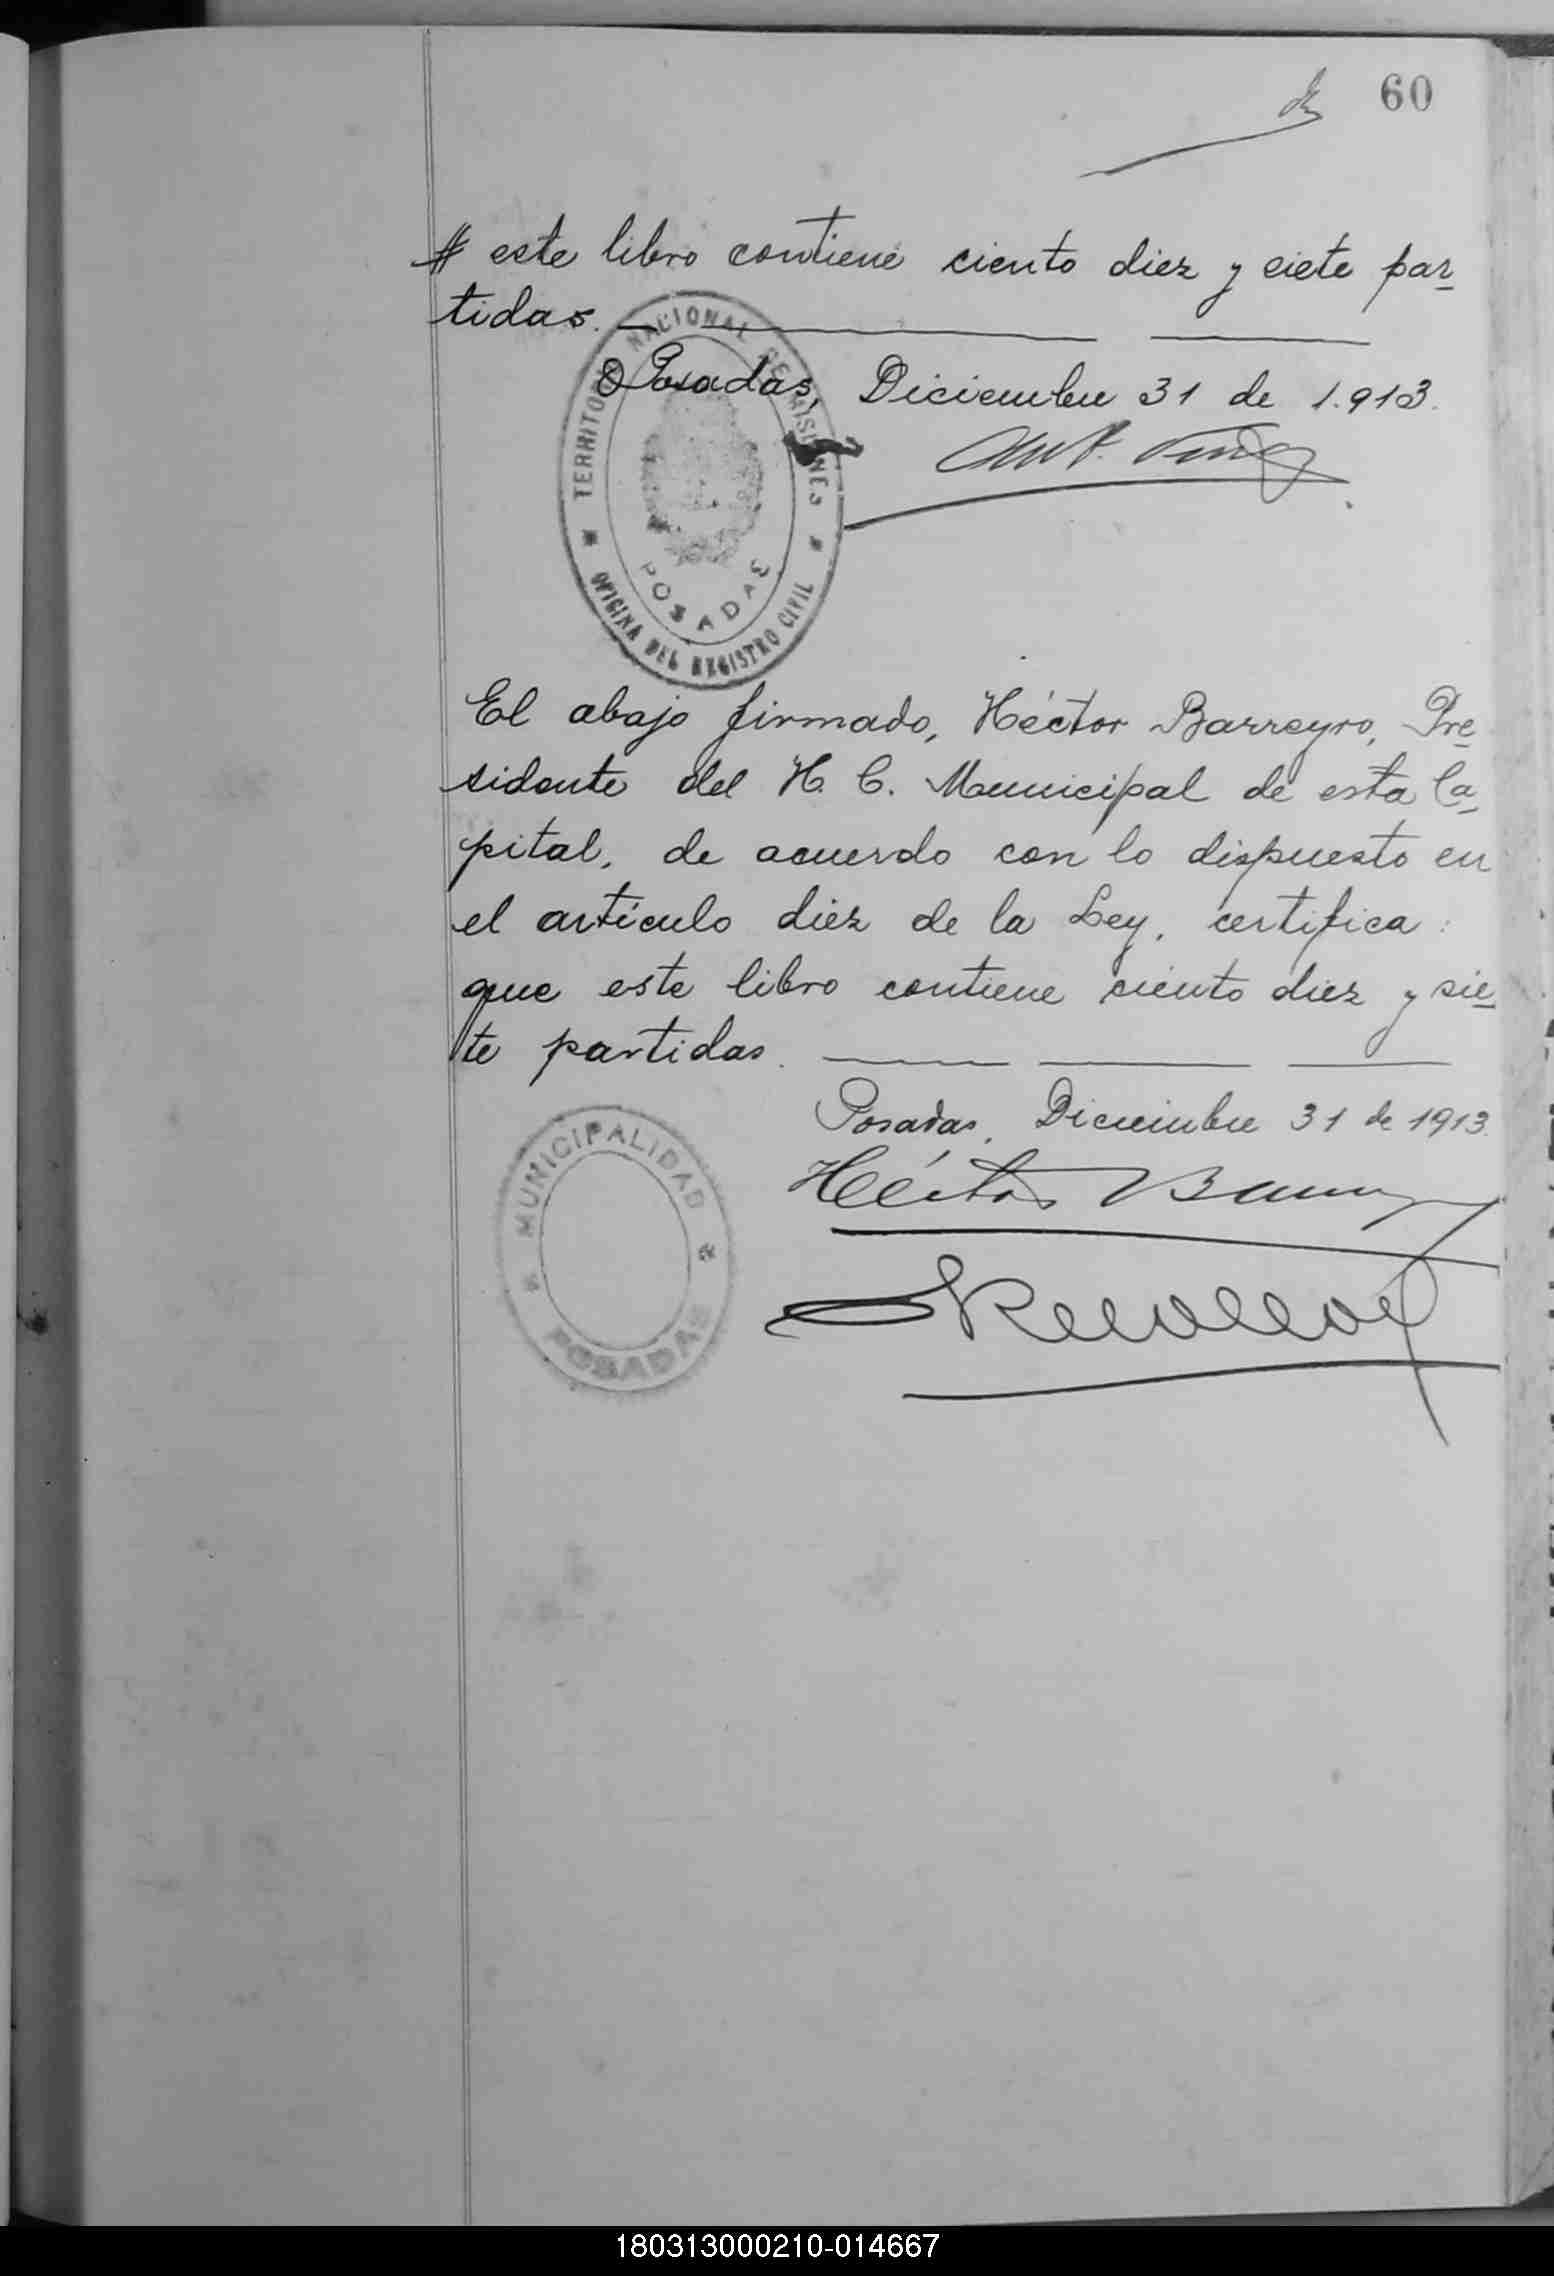 60
# este libro contiene ciento diez y siete par-
tidas.
TERRITORIO NACIONAL DE MISIONES
Posadas, Diciembre 31 de 1.913.
POSADAS
OFICINA DEL REGISTRO CIVIL
El abajo firmado, Héctor Barreyro, Pre-
sidente del H. C. Municipal de esta Ca-
pital, de acuerdo con lo dispuesto en
el artículo diez de la Ley, certifica:
que este libro contiene ciento diez y sie-
te partidas.
Posadas, Diciembre 31 de 1913.
MUNICIPALIDAD
POSADAS
Héctor Barreyro
180313000210-014667